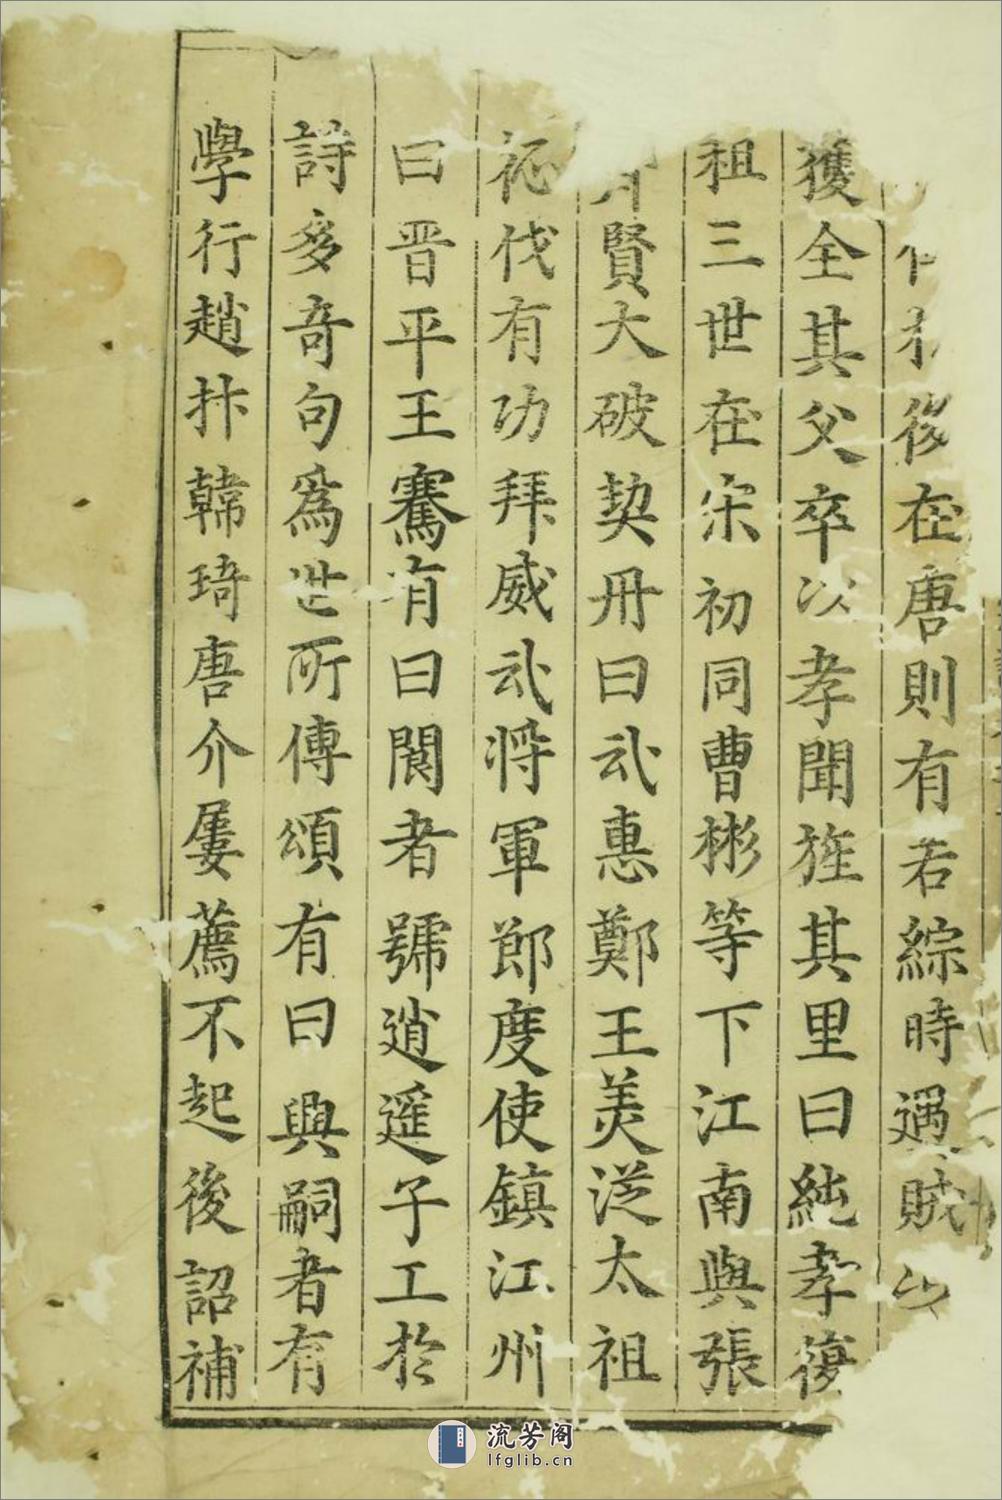 後在唐則有若綜時遇賊以
獲全其父卒以孝聞旌其里曰純孝復
祖三世在宋初同曹彬等下江南與張
賢大破契丹曰武惠鄭王美從太祖
征伐有功拜威武將軍節度使鎮江州
曰晉平王騫有曰閬者號逍遥子工於
詩多竒句爲世所傳頌有曰興嗣者有
學行趙抃韓琦唐介屢薦不起後詔補
流芳阁
lfglib.cn